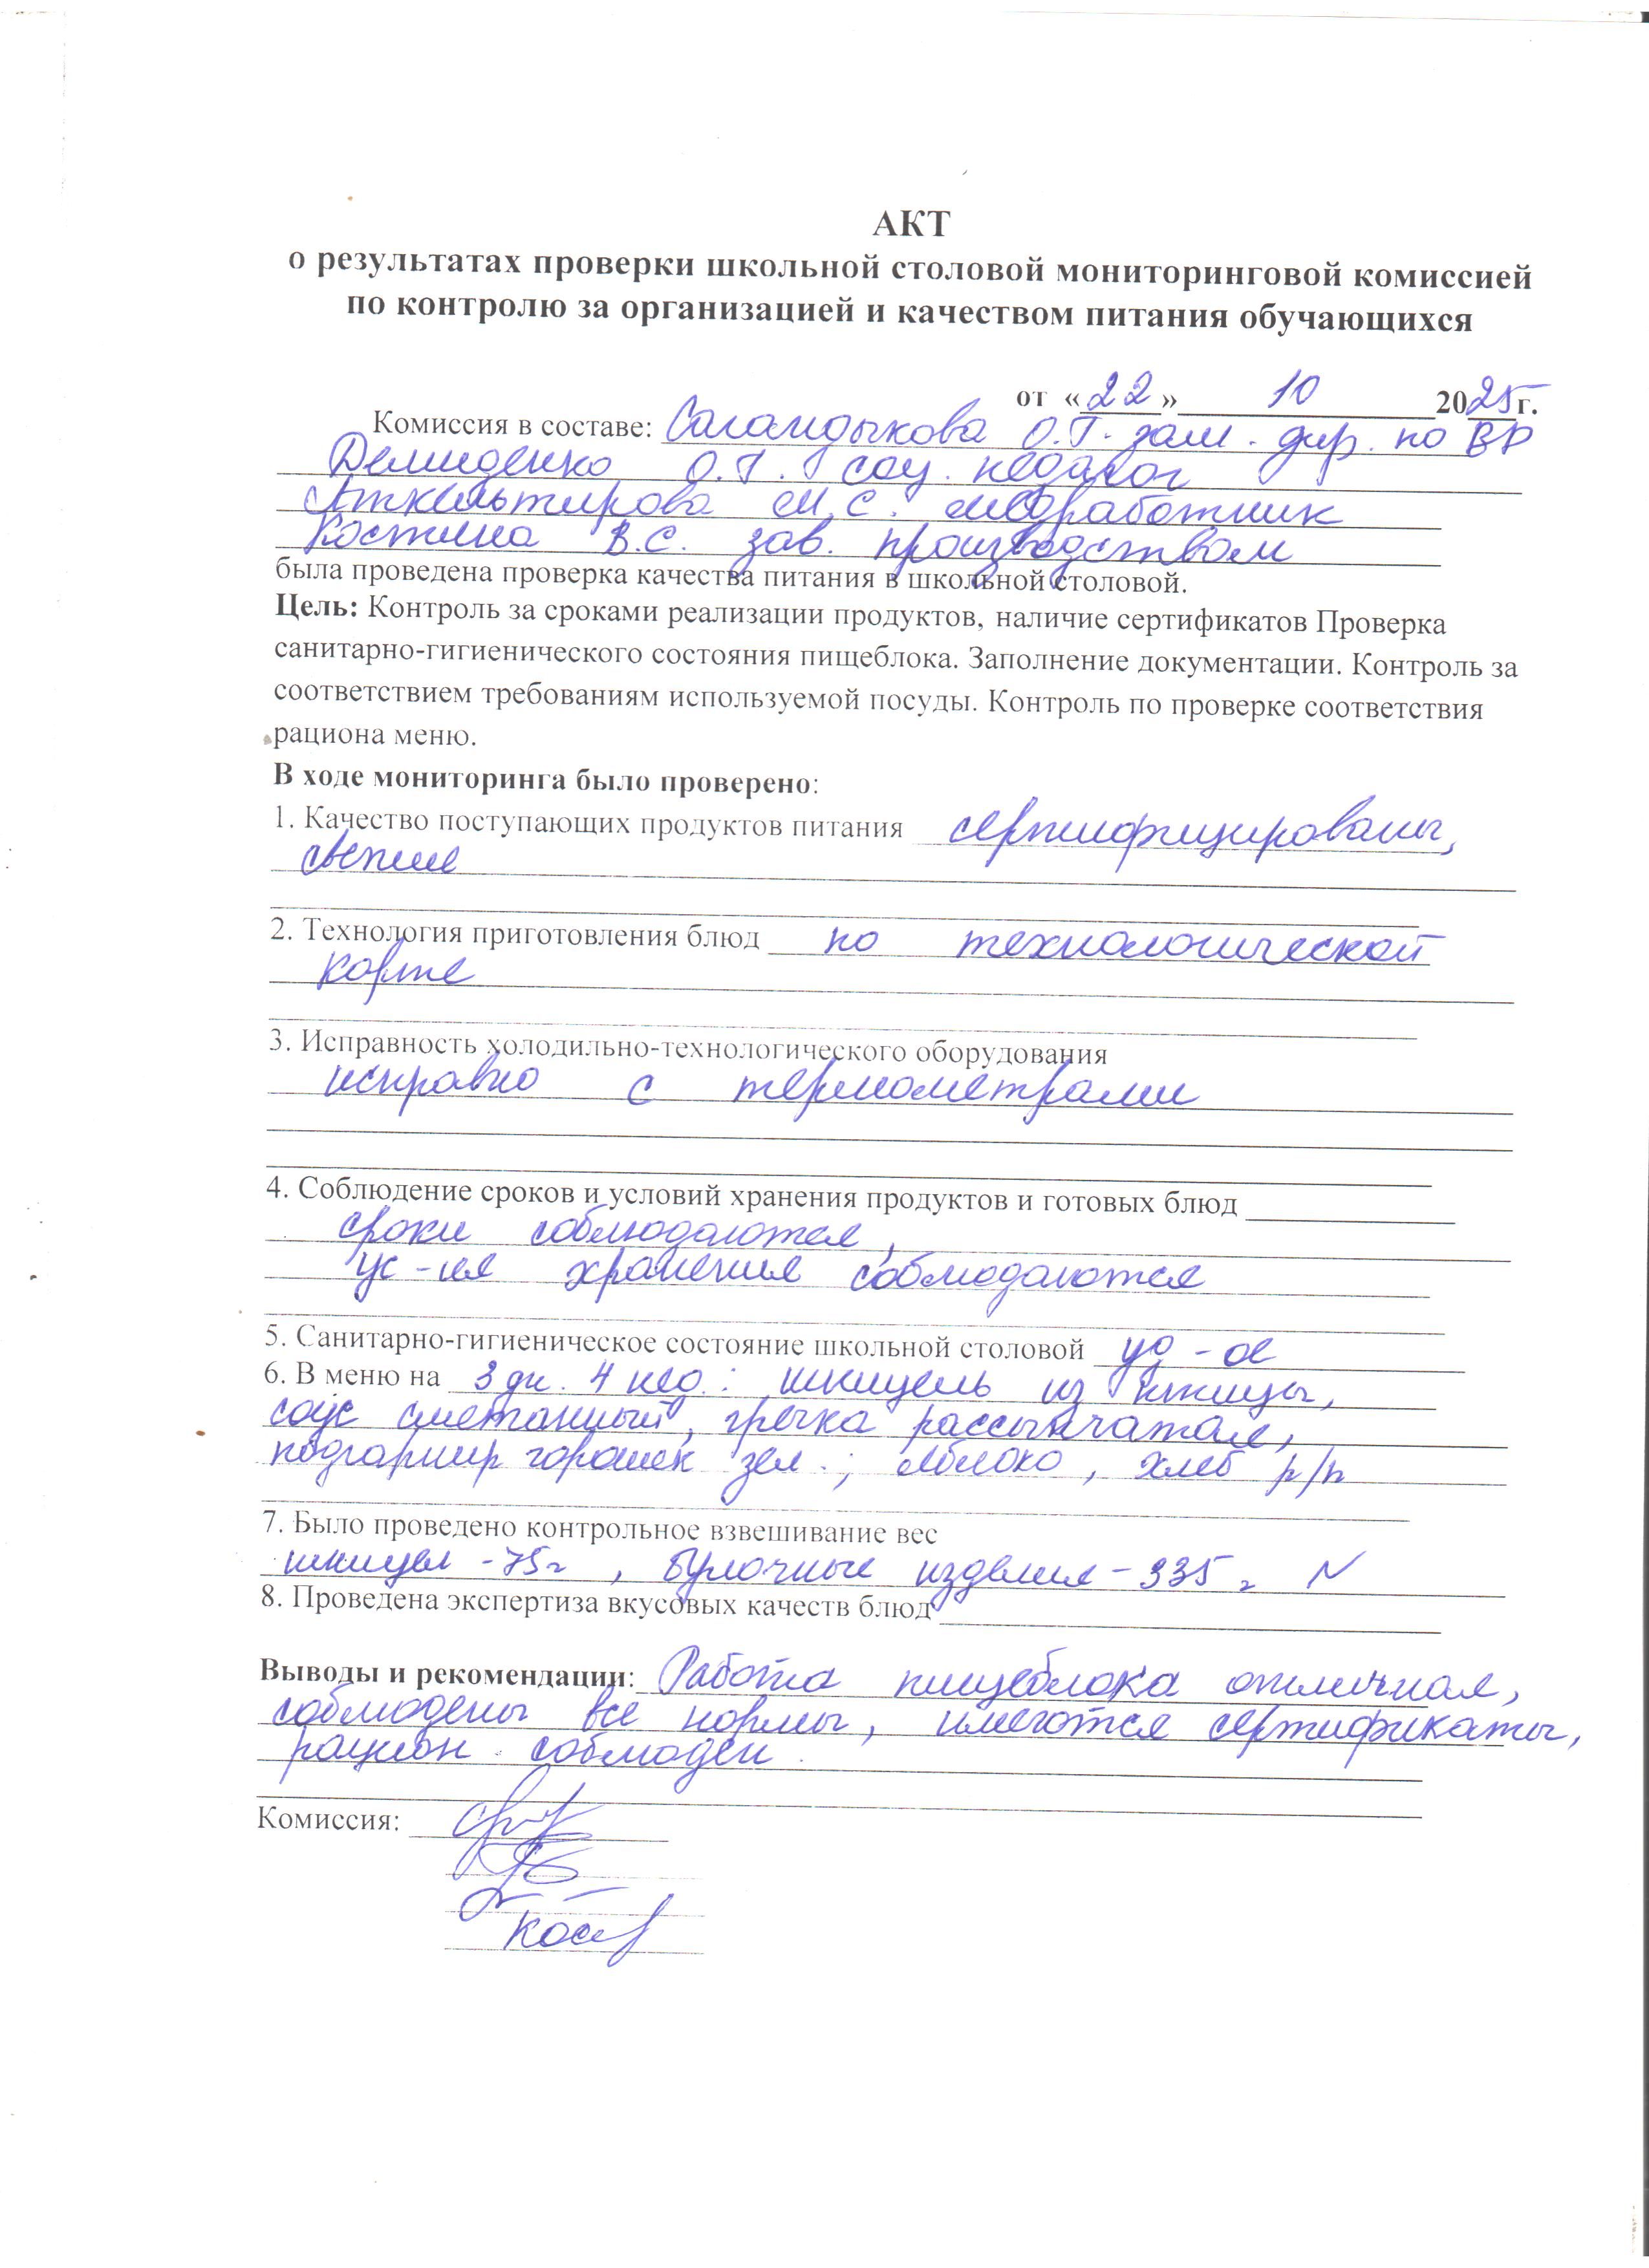 АКТ
о результатах проверки школьной столовой мониторинговой комиссией
по контролю за организацией и качеством питания обучающихся
от «22» 10 2025г.
Комиссия в составе: Сагандыкова О.Г. зам. дир. по ВР
Демиденко О.Г. соц. педагог
М.С. медработник
Костина В.С. зав. производством
была проведена проверка качества питания в школьной столовой.
Цель: Контроль за сроками реализации продуктов, наличие сертификатов Проверка
санитарно-гигиенического состояния пищеблока. Заполнение документации. Контроль за
соответствием требованиям используемой посуды. Контроль по проверке соответствия
рациона меню.
В ходе мониторинга было проверено:
1. Качество поступающих продуктов питания сертифицированы,
свежие
2. Технология приготовления блюд по технологической
карте
3. Исправность холодильно-технологического оборудования
исправно с термометрами
4. Соблюдение сроков и условий хранения продуктов и готовых блюд
сроки соблюдаются,
ус-ия хранения соблюдаются
5. Санитарно-гигиеническое состояние школьной столовой уд-ое
6. В меню на 3 дн. 4 нед.: шницель из птицы,
соус сметанный, гречка рассыпчатая,
подгарнир горошек зел.; яблоко, хлеб р/п
7. Было проведено контрольное взвешивание вес
шницел - 75г, булочные изделия - 335г N
8. Проведена экспертиза вкусовых качеств блюд
Выводы и рекомендации: Работа пищеблока отличная,
соблюдены все нормы, имеются сертификаты,
рацион соблюден.
Комиссия: